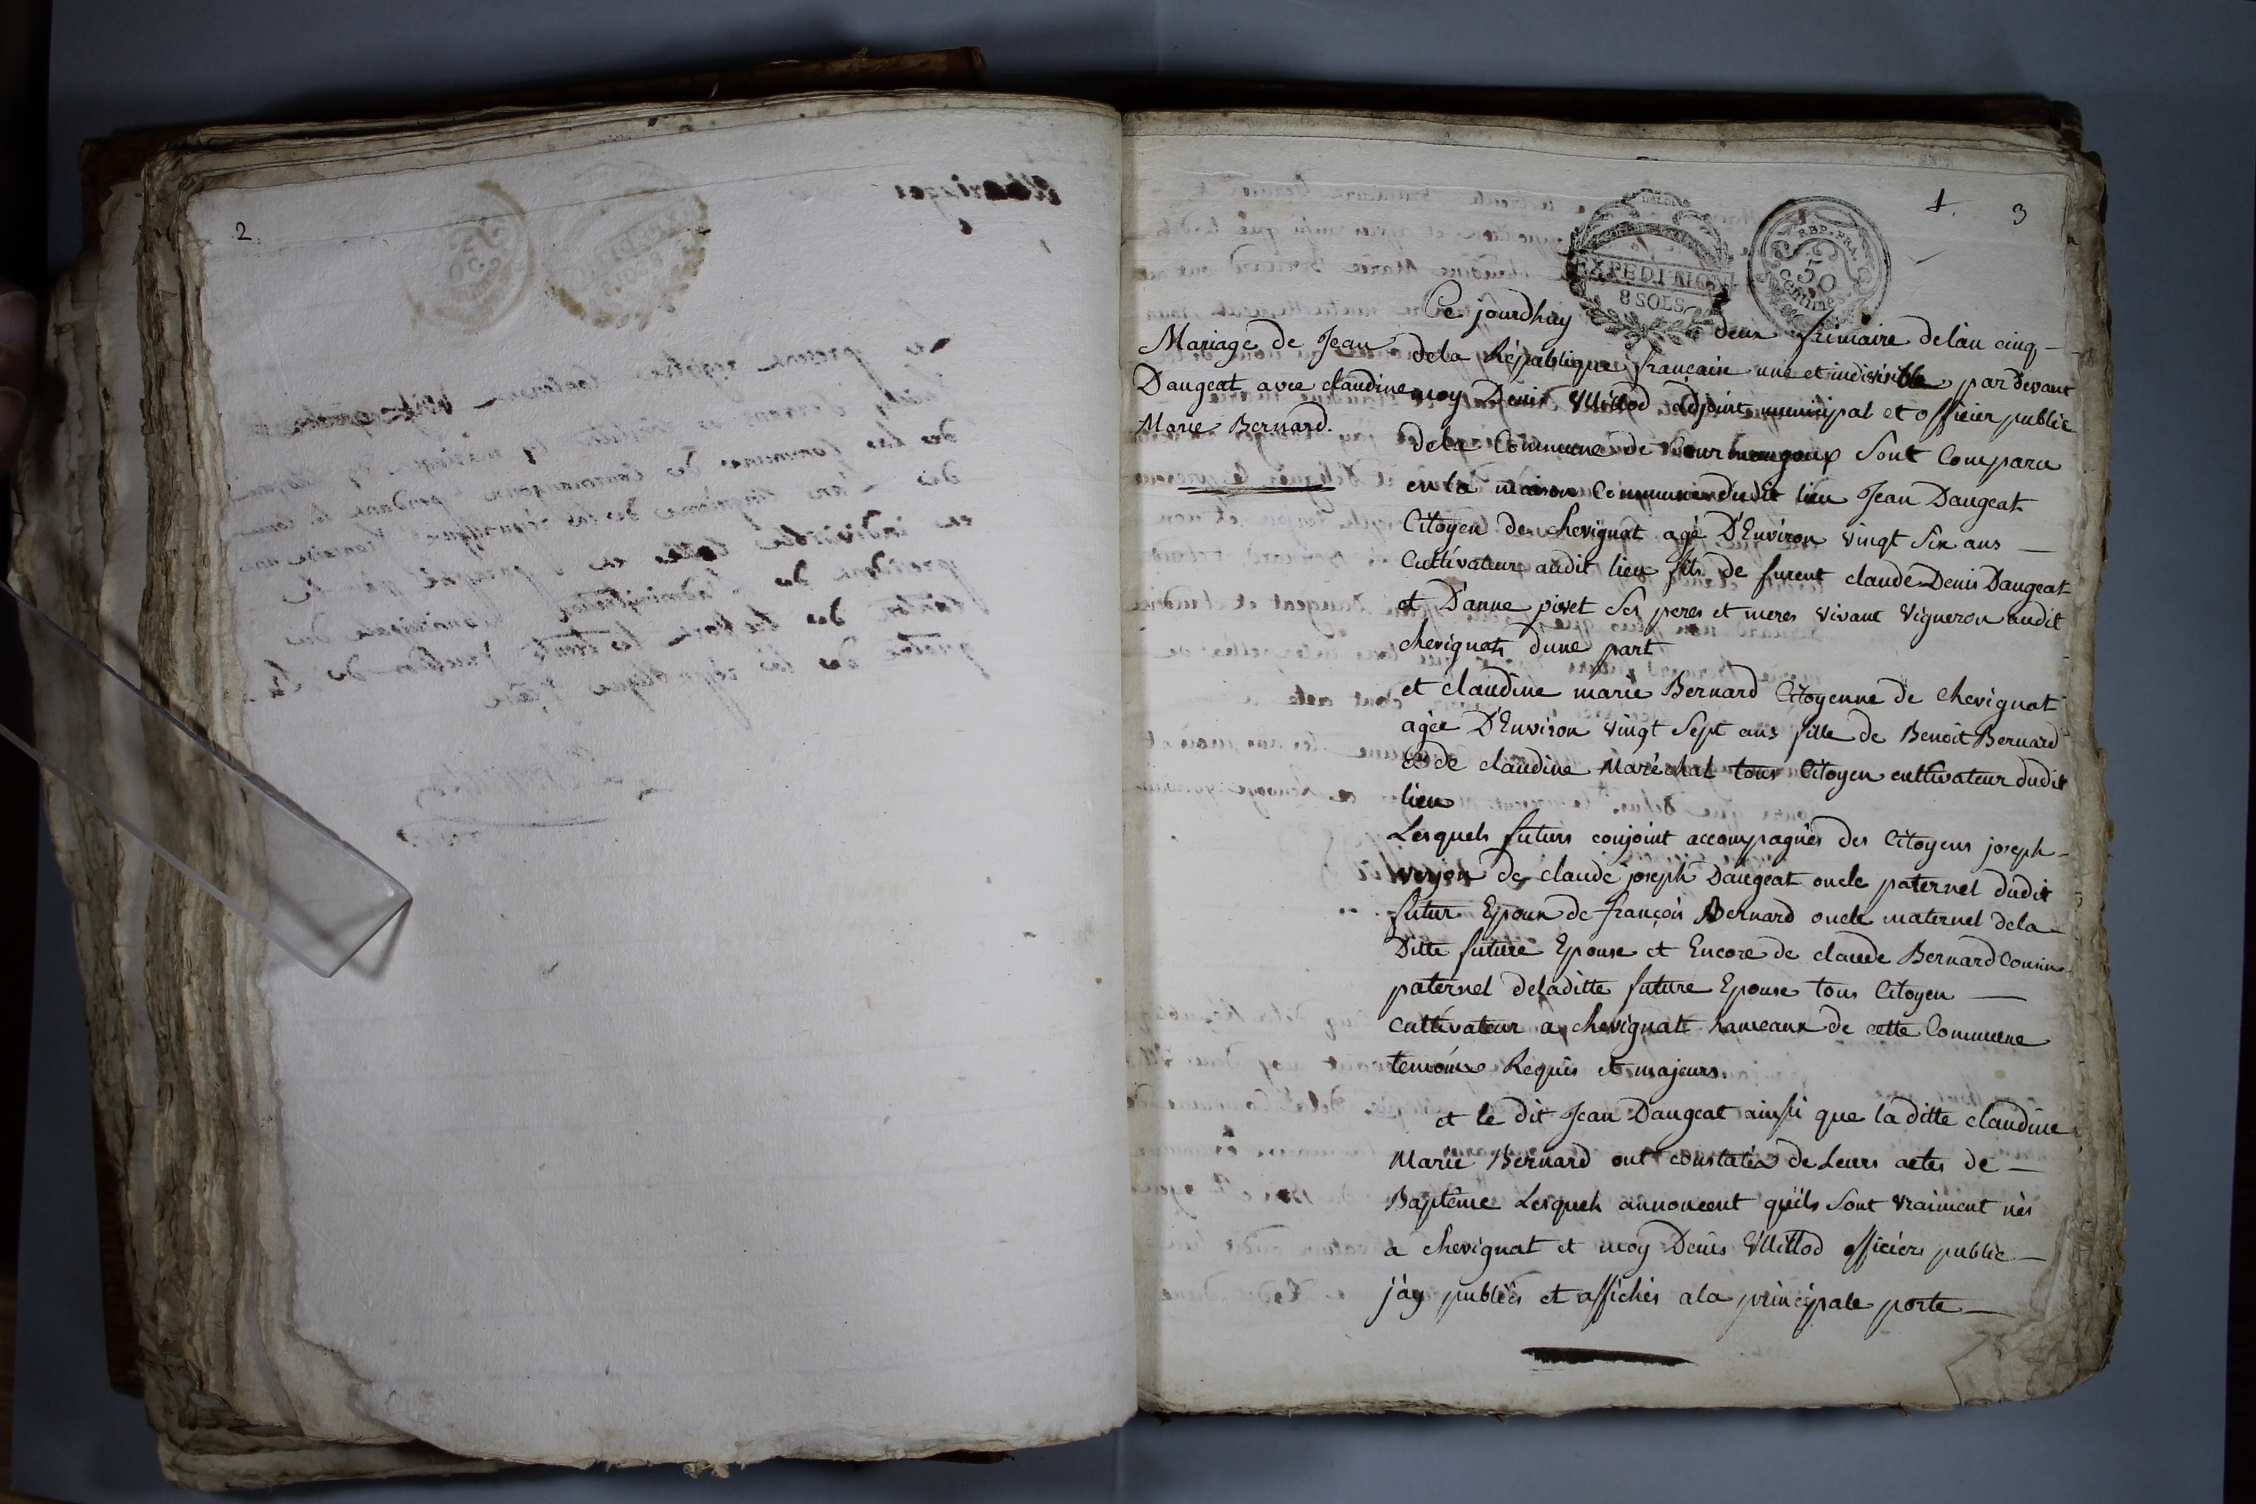 2.
1.
3
EXPEDITION
8 SOLS
REP. FRA.
50
centimes
Mariage de Jean
Daugeat avec claudine
Marie Bernard.
Ce jourdhuy deux frimaire delan cinq
dela République française une et indivisible par devant
moy Denis Uuillod adjoint municipal et officier public
dela Commune de Courmangoux sont Comparu
en la maison Commune dudit lieu Jean Daugeat
Citoyen de chevignat agé D'Environ vingt six ans
Cultivateur audit lieu fils de furent claude Denis Daugeat
et D'anne pivet ses peres et meres vivant vigneron audit
chevignat, dune part
et claudine marie Bernard Citoyenne de chevignat
agée D'Environ vingt sept ans fille de Benoit Bernard
et de claudine Maréchal tous Citoyen cultivateur dudit
lieu
Lesquels futurs conjoint accompagnés des Citoyens joseph
verjon de claude joseph Daugeat oncle paternel dudit
futur Epoux de françois Bernard oncle maternel dela
Ditte future Epouse et Encore de claude Bernard Cousin
paternel deladitte future Epouse tous Citoyen
cultivateur a chevignat hameaux de cette Commune
temoins Requis et majeurs.
et le dit Jean Daugeat ainsi que la ditte claudine
Marie Bernard ont constatés de Leurs actes de
Baptême Lesquels annoncent qu'ils sont vraiment nés
a chevignat et moy Denis Uuillod officiers public
j'ay publiés et affichés ala principale porte